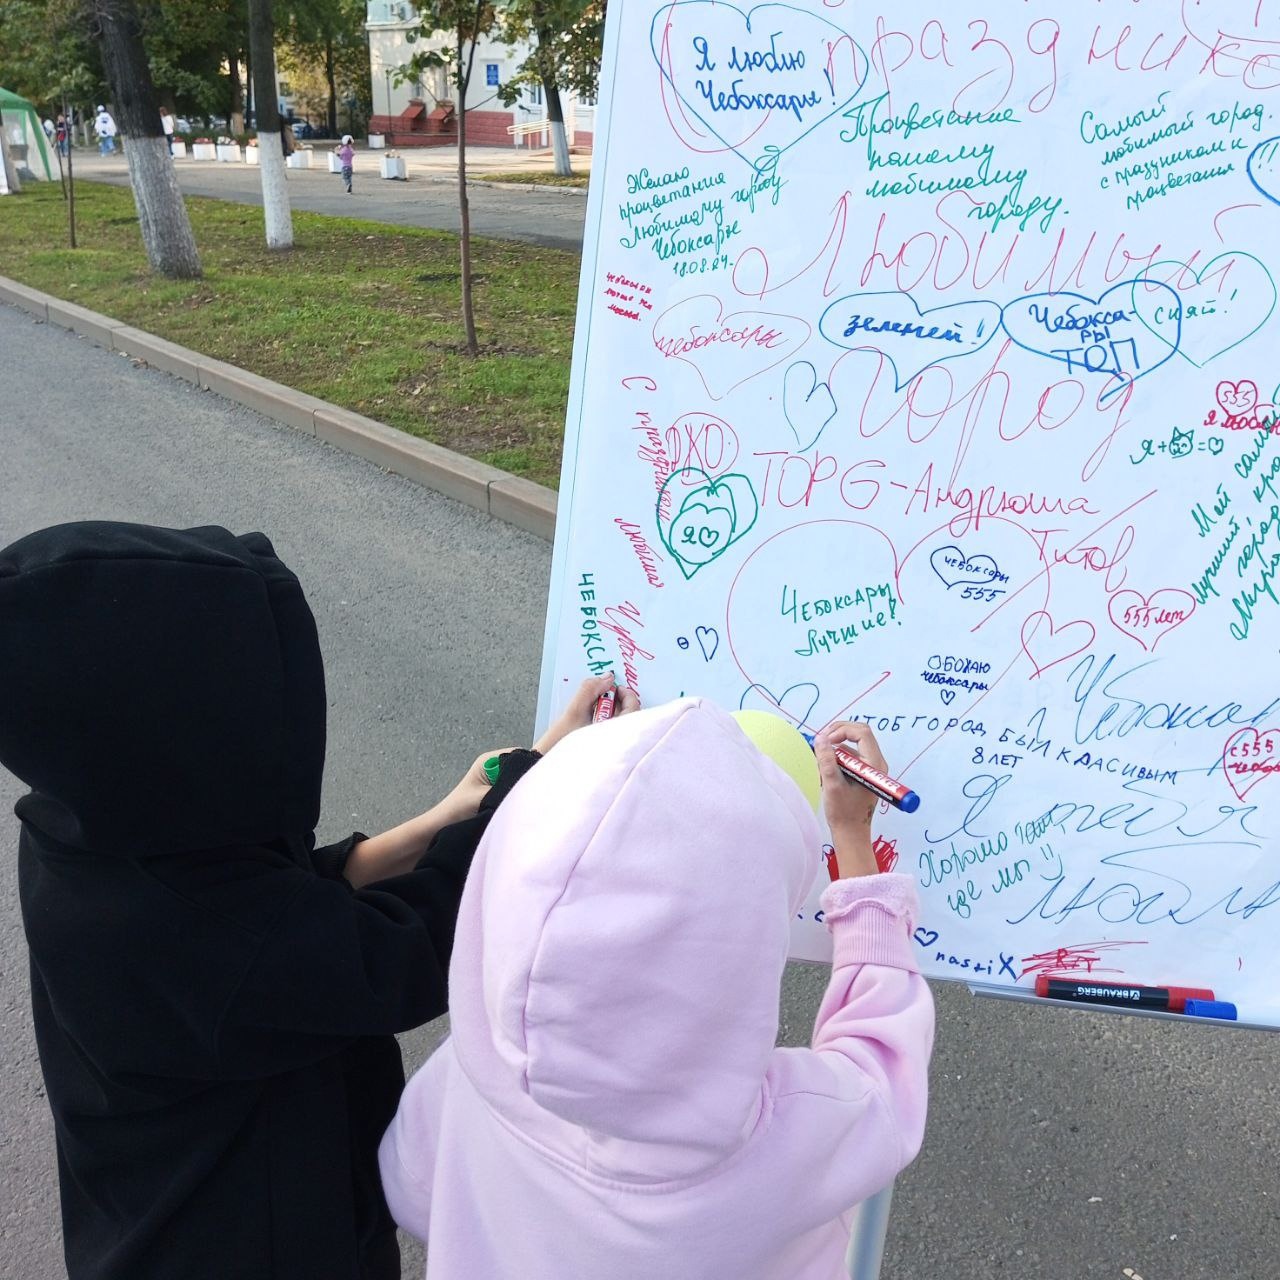 Я люблю
Чебоксары!
праздник
Процветание
нашему
любимому
городу.
Самый
любимый город.
с праздником и
процветания
!!
Желаю
процветания
Любимому городу
Чебоксары
18.09.24.
Любимый
город
чебоксары
зеленей!
Чебокса-
ры
ТОП
сияй!
С праздником
любимая
ЭХО
Я♡
TOPG-Андрюша
Титов
555
Я люблю
Я+ =♡
Мой самый
лучший
город
ЧЕБОКСАРЫ
555
555 лет
Чебоксары
Лучшие!
ЧЕБОКСА
ОБОЖАЮ
чебоксары
ЧТОБ ГОРОД БЫЛ КРАСИВЫМ
8 ЛЕТ
с 555
Я тебя
люблю
Хорошо там,
где мы !!
nastix
ULTRA MARKER
BRAUBERG